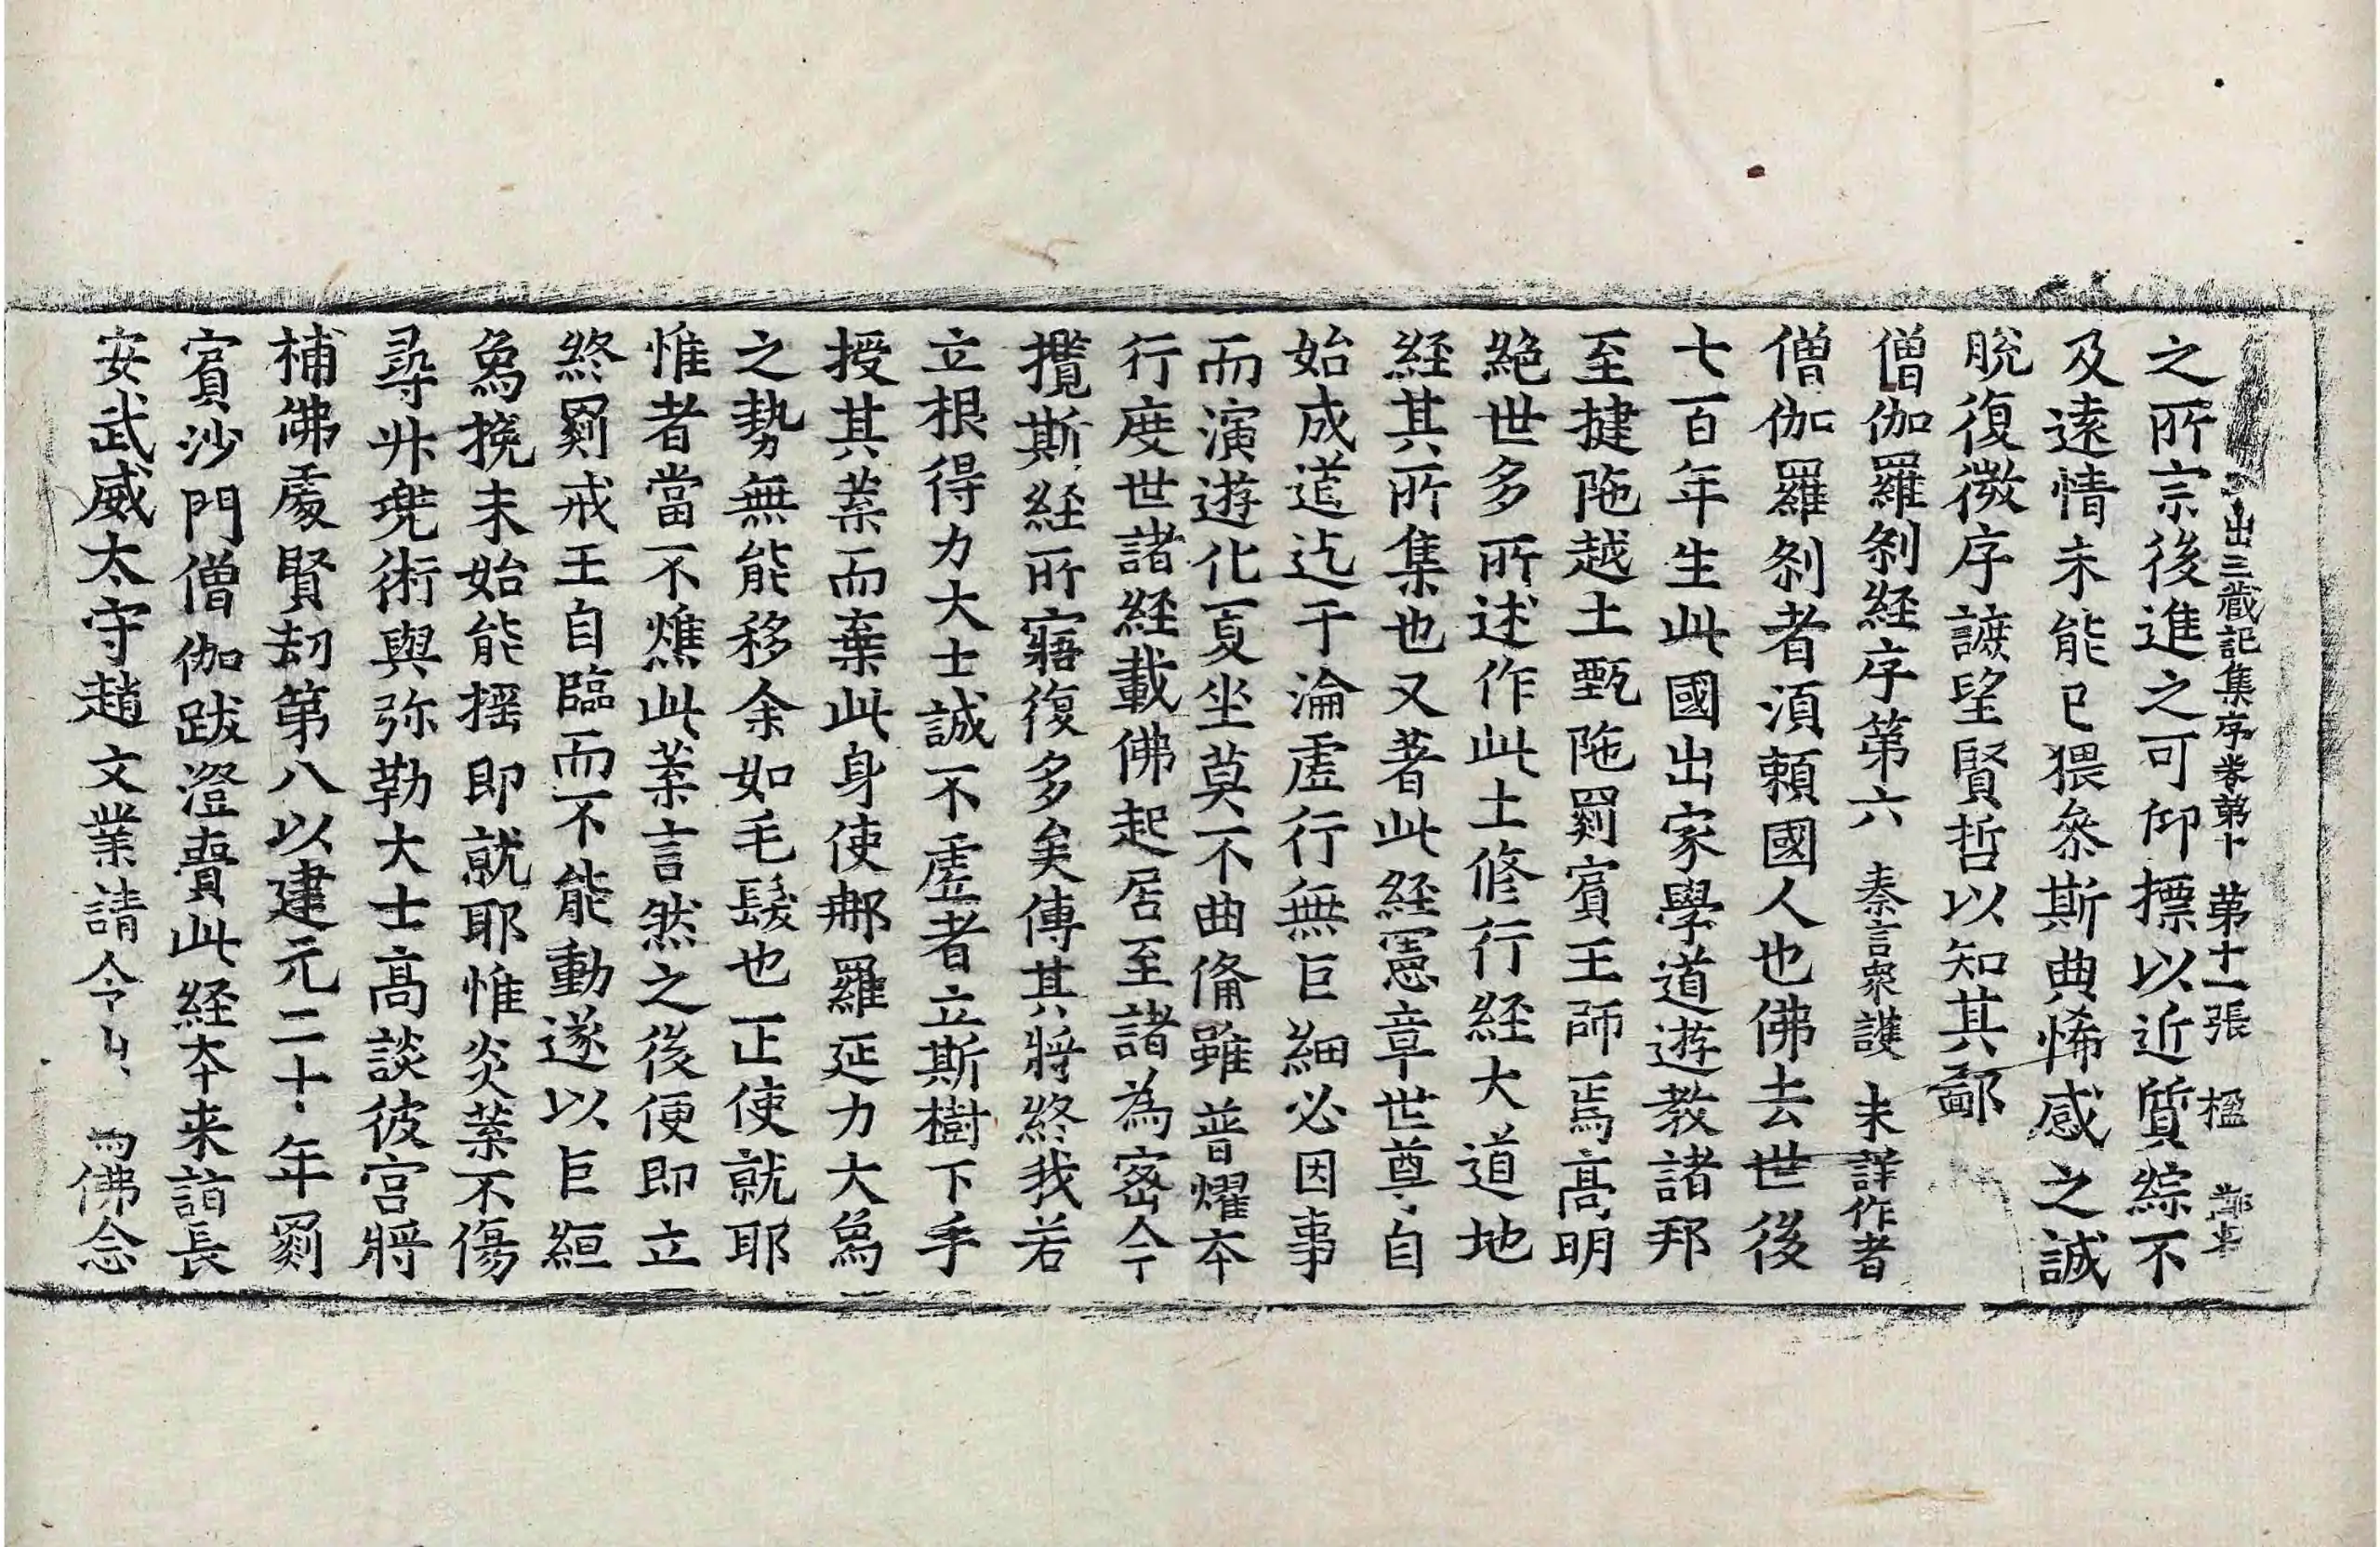 出三藏記集序卷第十 第十一張 楹
之所宗後進之可仰摽以近質綜不
及遠情未能已猥叅斯典悕感之誠
脫復微序謶望賢哲以知其鄙
僧伽羅刹経序第六 秦言衆護 未詳作者
僧伽羅刹者湏頼國人也佛去世後
七百年生此國出家學道遊教諸邦
至揵陁越土甄陁罽賓王師焉高明
絶世多所述作此土修行経大道地
経其所集也又著此経憲章世尊自
始成道迄于淪虛行無巨細必因事
而演遊化夏坐莫不曲俻雖普耀本
行度世諸経載佛起居至諸為宻今
攬斯経所寤復多矣傳其將終我若
立根得力大士誠不虛者立斯樹下手
授其葉而棄此身使那羅延力大象
之勢無能移余如毛髮也正使就耶
惟者當不燋此葉言然之後便即立
終罽戒王自臨而不能動遂以巨絙
象挽未始能揺即就耶惟炎葉不傷
尋升兠術與弥勒大士髙談彼宫將
補佛處賢劫第八以建元二十年罽
賔沙門僧伽跋澄賷此経本来詣長
安武威太守趙文業請令 佛念